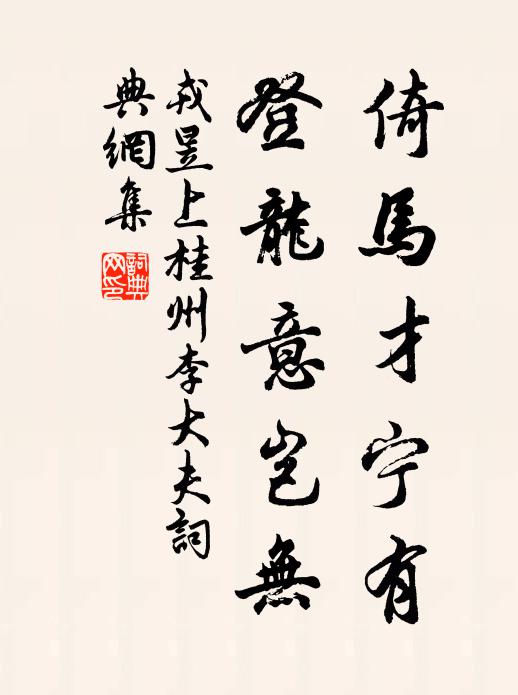 倚馬才宁有
登龍意豈無
戎昱上桂州李大夫詞
典網集
詞典
网印